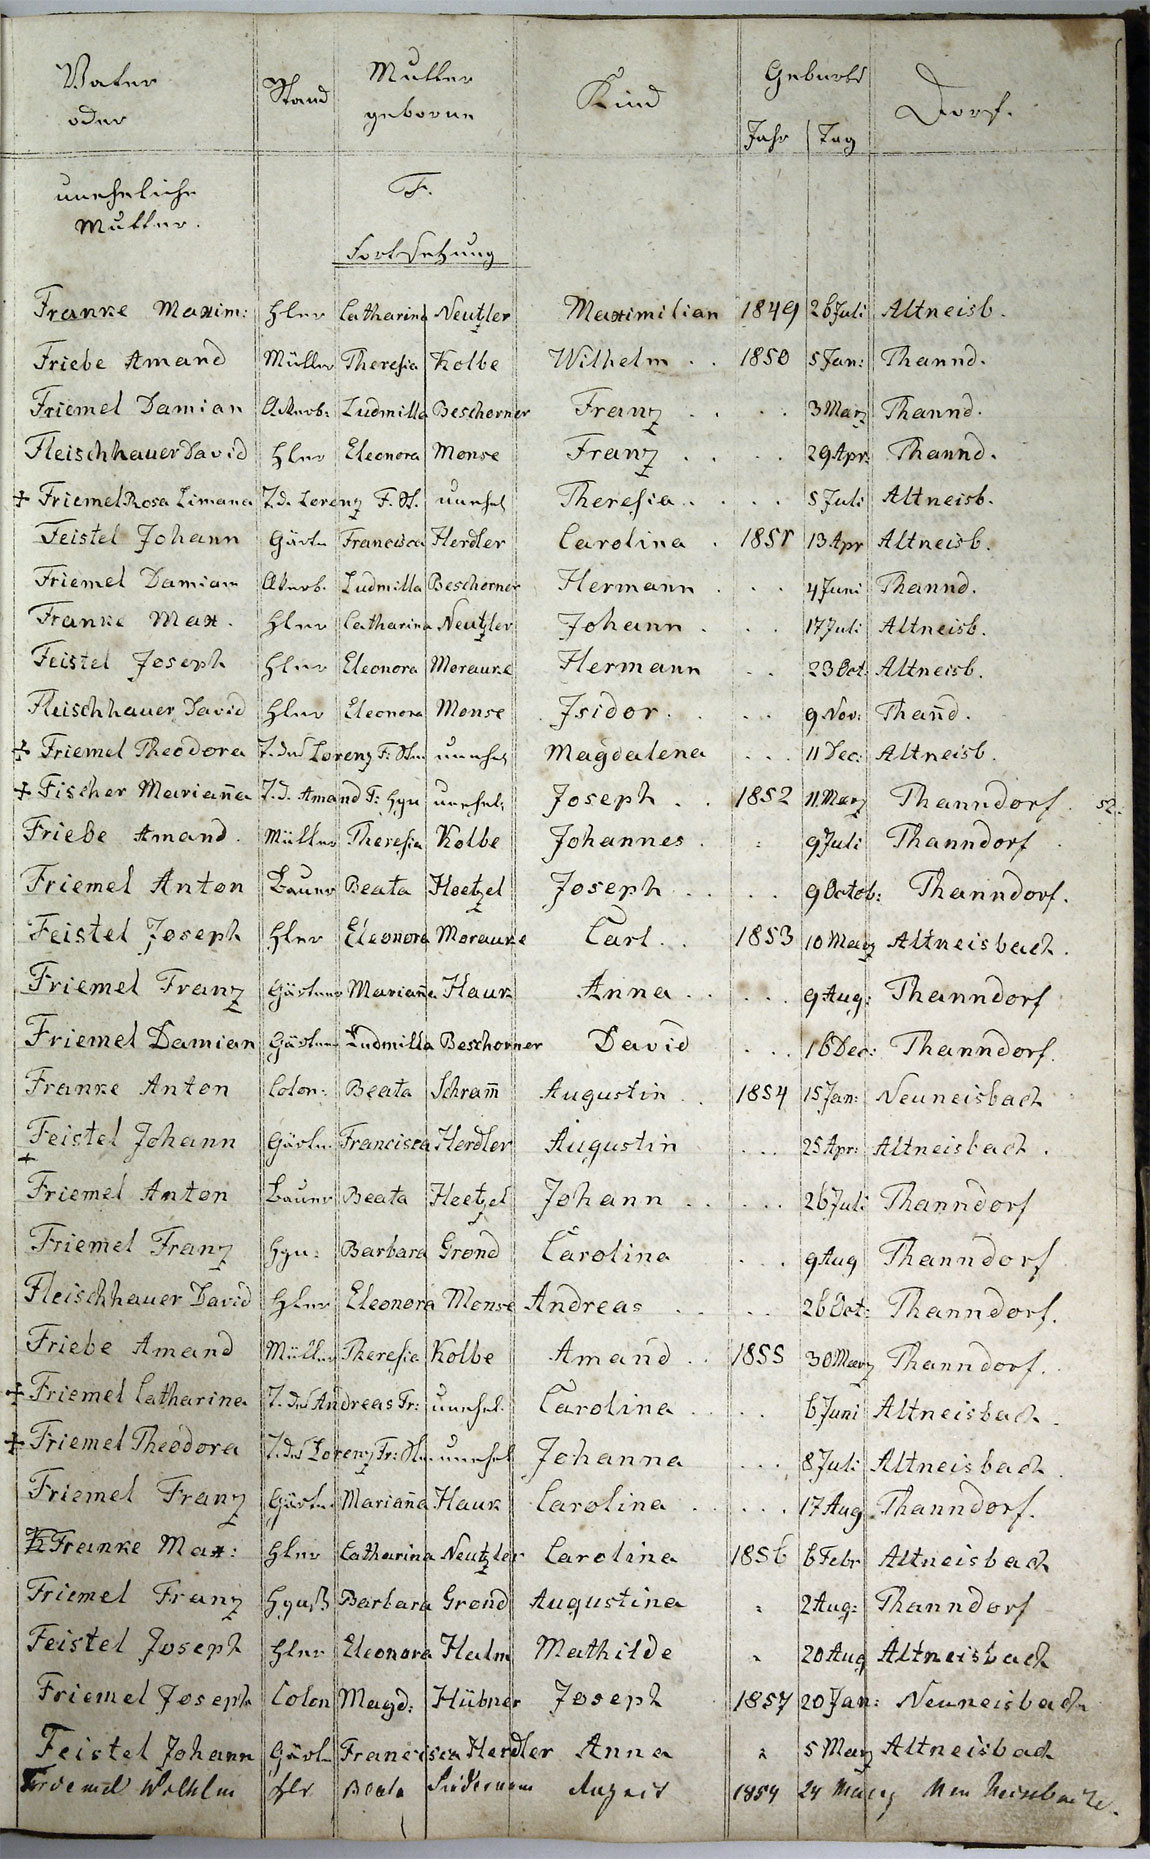 Vater oder Stand Mutter geborne Kind Geburts Jahr Tag Dorf.
uneheliche Mutter. F.
Fortsetzung
Franke Maxim: Hler Catharina Neutzler Maximilian 1849 26 Juli Altneisb.
Friebe Amand Müller Theresia Kolbe Wilhelm . . 1850 5 Jan: Thannd.
Friemel Damian Ackerb: Ludmilla Beschorner Franz . . . . 3 Marz Thannd.
Fleischhauer David Hler Eleonora Monse Franz . . . . 29 Apr: Thannd.
+ Friemel Rosa Limana T. d. Lorenz F. St. unehel Theresia . . . . 5 Juli Altneisb.
Feistel Johann Gärtn Francisca Herdler Carolina . 1851 13 Apr Altneisb.
Friemel Damian Ackerb. Ludmilla Beschorner Hermann . . . 4 Juni Thannd.
Franke Max. Hler Catharina Neutzler Johann . . . 17 Juli Altneisb.
Feistel Joseph Hler Eleonora Morauke Hermann . . 23 Oct: Altneisb.
Fleischhauer David Hler Eleonora Monse Isidor . . . . 9 Nov: Thañd.
+ Friemel Theodora T. des Lorenz F: unehel Magdalena . . . 11 Dec: Altneisb.
+ Fischer Mariaña T. d. Amand F: Hgn unehel: Joseph . . 1852 11. Marz Thanndorf. 52.
Friebe Amand. Müller Theresia Kolbe Johannes . : 9 Juli Thanndorf .
Friemel Anton Bauer Beata Hoetzel Joseph . . . . 9 Octob: Thanndorf.
Feistel Joseph Hler Eleonora Morauke Carl . . 1853 10 Marz Altneisbach.
Friemel Franz Gärtner Mariaña Hauk Anna . . . . . 9 Aug: Thanndorf
Friemel Damian Gärtner Ludmilla Beschorner David . . . 16 Dec: Thanndorf.
Franke Anton Colon: Beata Schram̄ Augustin . . 1854 15 Jan: Neuneisbach
+ Feistel Johann Gärtn Francisca Herdler Augustin . . . 25 Apr: Altneisbach .
Friemel Anton Bauer Beata Hoetzel Johann . . . . . 26 Juli Thanndorf
Friemel Franz Hgn: Barbara Grond Carolina . . . 9 Aug Thanndorf
Fleischhauer David Hler Eleonora Monse Andreas . . . . 26 Oct: Thanndorf.
Friebe Amand Müller Theresia Kolbe Amand . . 1855 30 Marz Thanndorf.
+ Friemel Catharina T. des Andreas Fr: unehel. Carolina . . . . 6 Juni Altneisbach .
+ Friemel Theodora T. des Lorenz Fr: unehel Johanna . . . 8 Juli Altneisbach .
Friemel Franz Gärtn Mariaña Hauk Carolina . . . . . 17 Aug Thanndorf.
Franke Max: Hler Catharina Neutzler Carolina 1856 6 Febr Altneisbach
Friemel Franz Barbara Grond Augustina " 2 Aug: Thanndorf
Feistel Joseph Hler Eleonora Halm Mathilde " 20 Aug Altneisbach
Friemel Joseph Colon Magd: Hübner Joseph 1857 20 Jan: Neuneisbach
Feistel Johann Gärtn Francisca Herdler Anna " 5 Marz Altneisbach
Friemel Wilhelm Hlr Beata August 24 März Neu Neisbach.